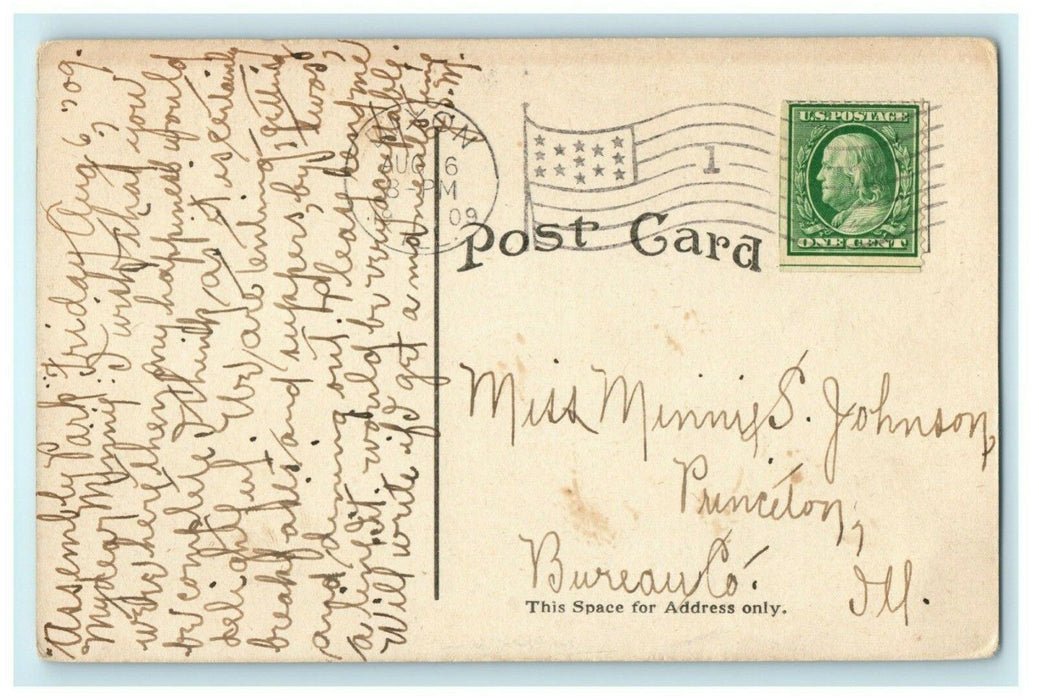 "Assembly Park" Friday Aug 6, '09.
My dear Minnie: I wish that you
were here then my happiness would
be complete I think as it is certainly
delightful. We are tenting, getting
breakfasts and suppers, by twos
and dining out. Please
a line it would be very
Will write if I get a
DIXON
AUG 6
8-PM
09
1
U.S. POSTAGE
ONE CENT
Post Card
Miss Minnie S. Johnson,
Princeton,
Bureau Co.
Ill.
This Space for Address only.